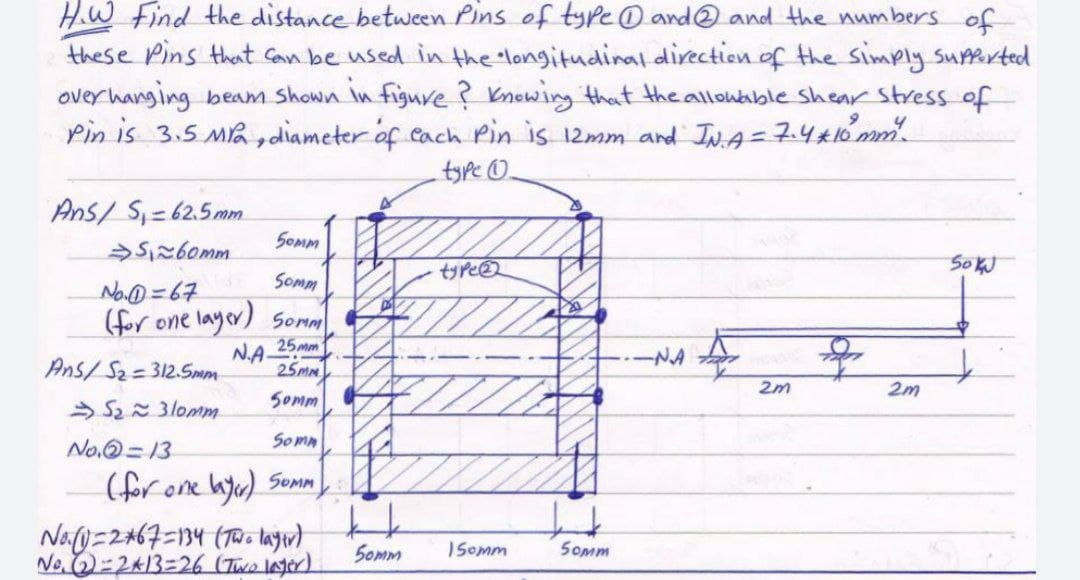 H.W Find the distance between Pins of type ① and ② and the numbers of
these Pins that can be used in the longitudinal direction of the simply supported
overhanging beam shown in figure? Knowing that the allowable shear stress of
Pin is 3.5 MPa, diameter of each Pin is 12mm and I_N.A = 7.4*10⁹mm⁴.
type ①
Ans/ S₁ = 62.5mm
⇒ S₁≈60mm
No.① = 67
(for one layer)
Ans/ S₂ = 312.5mm
⇒ S₂ ≈ 310mm
No.② = 13
(for one layer)
No.① = 2*67=134 (Two layer)
No.② = 2*13=26 (Two layer)
50mm
50mm
50mm
25mm
25mm
50mm
50mm
50mm
type②
N.A
N.A
50mm
150mm
50mm
50kN
2m
2m